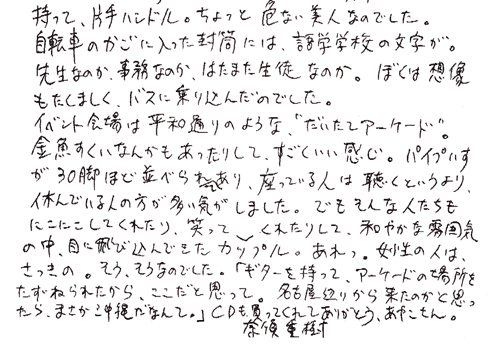 持って、片手ハンドル。ちょっと危ない美人なのでした。
自転車のかごに入った封筒には、語学学校の文字が。
先生なのか、事務なのか、はたまた生徒なのか。ぼくは想像
もたくましく、バスに乗り込んだのでした。
イベント会場は平和通りのような、“だいたてアーケード”。
金魚すくいなんかもあったりして、すごくいい感じ。パイプいす
が30脚ほど並べられてあり、座っている人は聴くというより、
休んでいる人の方が多い気がしました。でもそんな人たちも
にこにこしてくれたり、笑ってくれたりして、和やかな雰囲気
の中、目に飛び込んできたカップル。あれっ。女性の人は、
さっきの。そう、そうなのでした。「ギターを持って、アーケードの場所を
たずねられたから、ここだと思って。名古屋辺りから来たのかと思っ
たら、まさか沖縄だなんて。」CDも買ってくれてありがとう、あやこさん。
奈須重樹